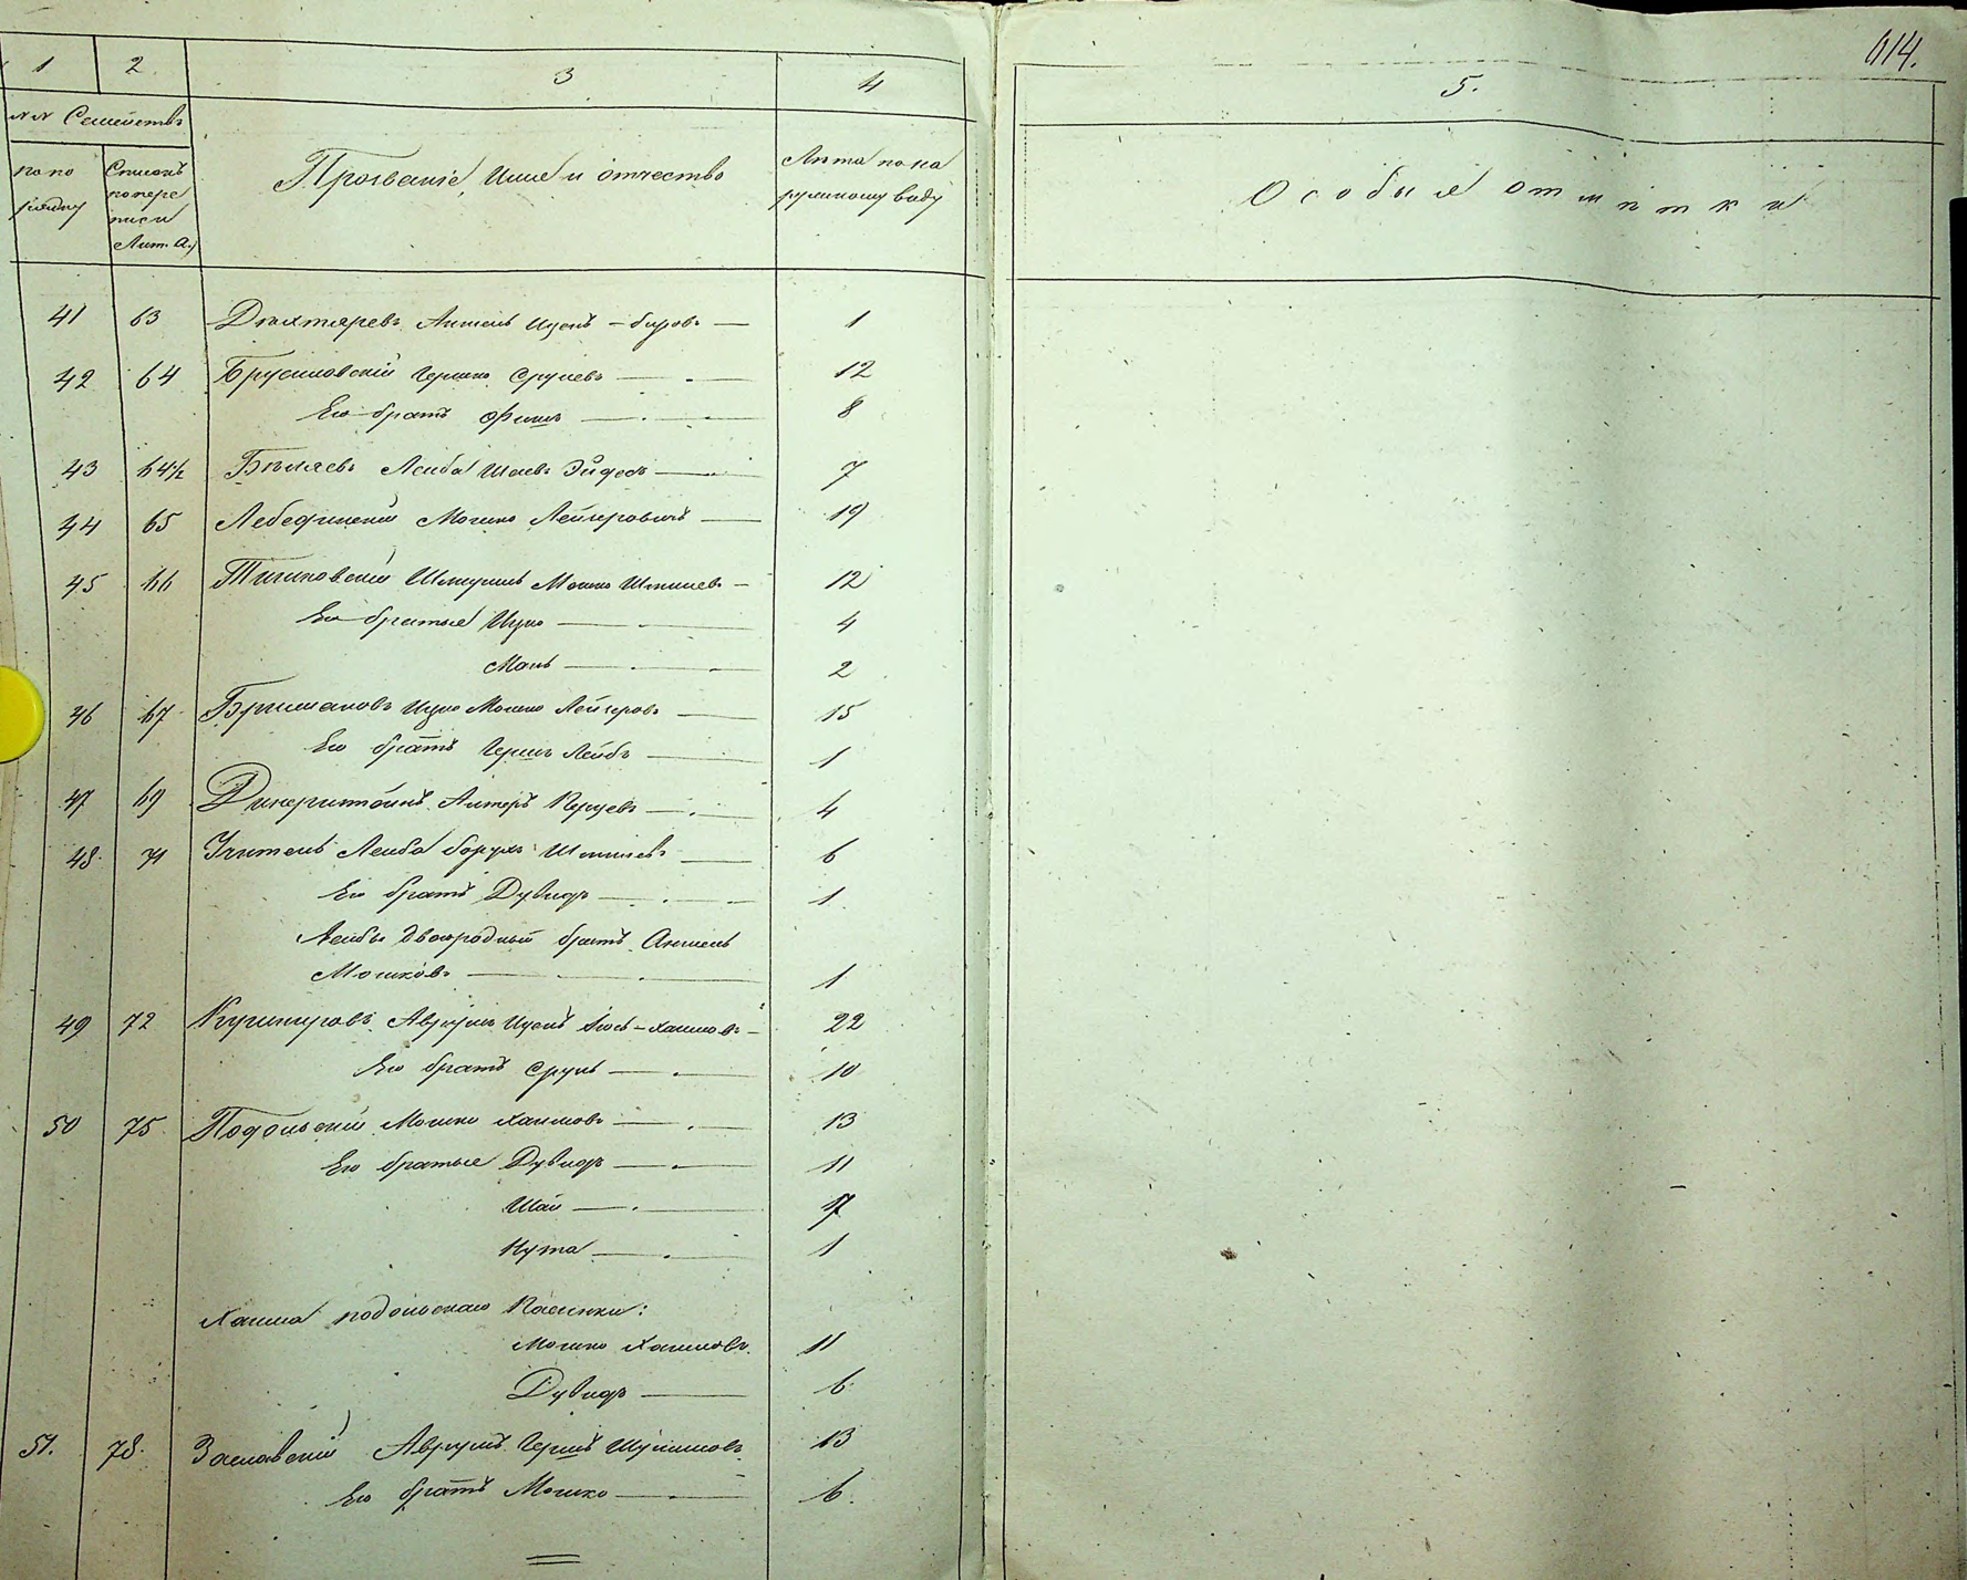 614.
1 2 3 4 5.
№№ Семействъ
по по рядку
Списокъ по пере писи Лит. А.
Прозваніе, Имя и отчество
Лѣта по на ружному виду
Особыя отмѣтки
41 63 Дехтяревъ Аншель Ицекъ - Беровъ — 1
42 64 Брусиловскій Гершко Срулевъ — 12
Его братъ Фишъ — 8
43 64½ Бѣляевъ Лейба Шаевъ — 7
44 65 Лебединскій Мошко Лейзеровичъ — 19
45 66 Шмуль Мошко — 12
Его братья Ицко — 4
— 2
46 67 Ицко Мошко Лейзеровъ — 15
Его братъ Гершъ Лейбъ — 1
47 69 Альтеръ — 4
48. 71 Учитель Лейба Борухъ — 6
Его братъ Дувидъ — 1
Лейбы двоюродный братъ Аншель
Мошковъ — 1
49 72 Аврумъ Ицекъ Іось-Хаимовъ — 22
Его братъ Сруль — 10
50 75 Подольскій Мошко Хаимовъ — 13
Его братья Дувидъ — 11
Шая — 7
Нута — 1
Хаима Подольскаго Пасынки:
Мошко Хаимовъ. 11
Дувидъ — 6
51. 78. Заславскій Аврумъ Гершъ Шулимовъ 13
Его братъ Мошко — 6.